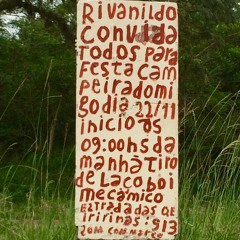 Rivanildo
convida
todos para
festa cam
peira domi
go dia 22/11
inicio às
09:00hs da
manhã tiro
de laço, boi
mecâmico
Estrada das QE
iririnas: 913